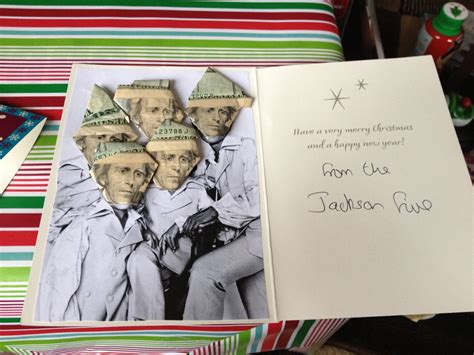 Have a very merry Christmas
and a happy new year!
from the
Jackson Five